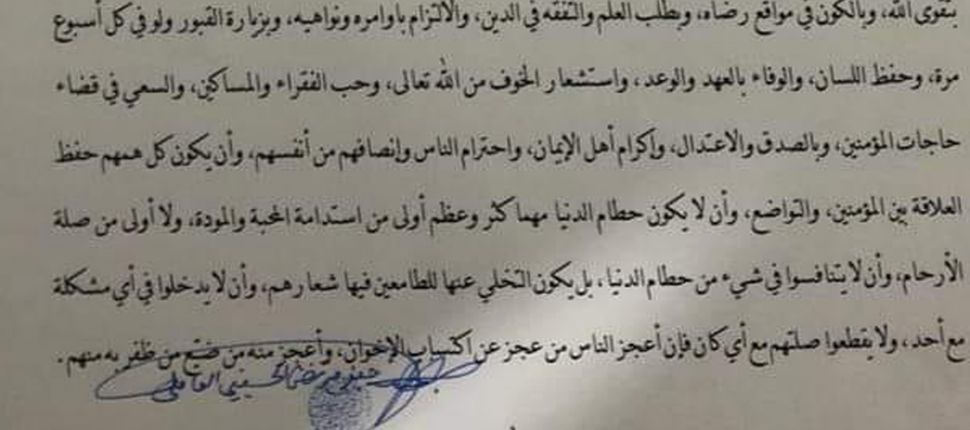 بتقوى الله، وبالكون في مواقع رضاه، وبطلب العلم والتفقه في الدين، والالتزام بأوامره ونواهيه، وبزيارة القبور ولو في كل أسبوع
مرة، وحفظ اللسان، والوفاء بالعهد والوعد، واستشعار الخوف من الله تعالى، وحب الفقراء والمساكين، والسعي في قضاء
حاجات المؤمنين، وبالصدق والاعتدال، وإكرام أهل الإيمان، واحترام الناس وإنصافهم من أنفسهم، وأن يكون كل همهم حفظ
العلاقة بين المؤمنين، والتواضع، وأن لا يكون حطام الدنيا مهما كثر وعظم أولى من استدامة المحبة والمودة، ولا أولى من صلة
الأرحام، وأن لا يتنافسوا في شيء من حطام الدنيا، بل يكون التخلي عنها للطامعين فيها شعارهم، وأن لا يدخلوا في أي مشكلة
مع أحد، ولا يقطعوا صلتهم مع أي كان فإن أعجز الناس من عجز عن اكتساب الإخوان، وأعجز منه من ضيّع من ظفر به منهم.
جعفر مرتضى الحسيني العاملي